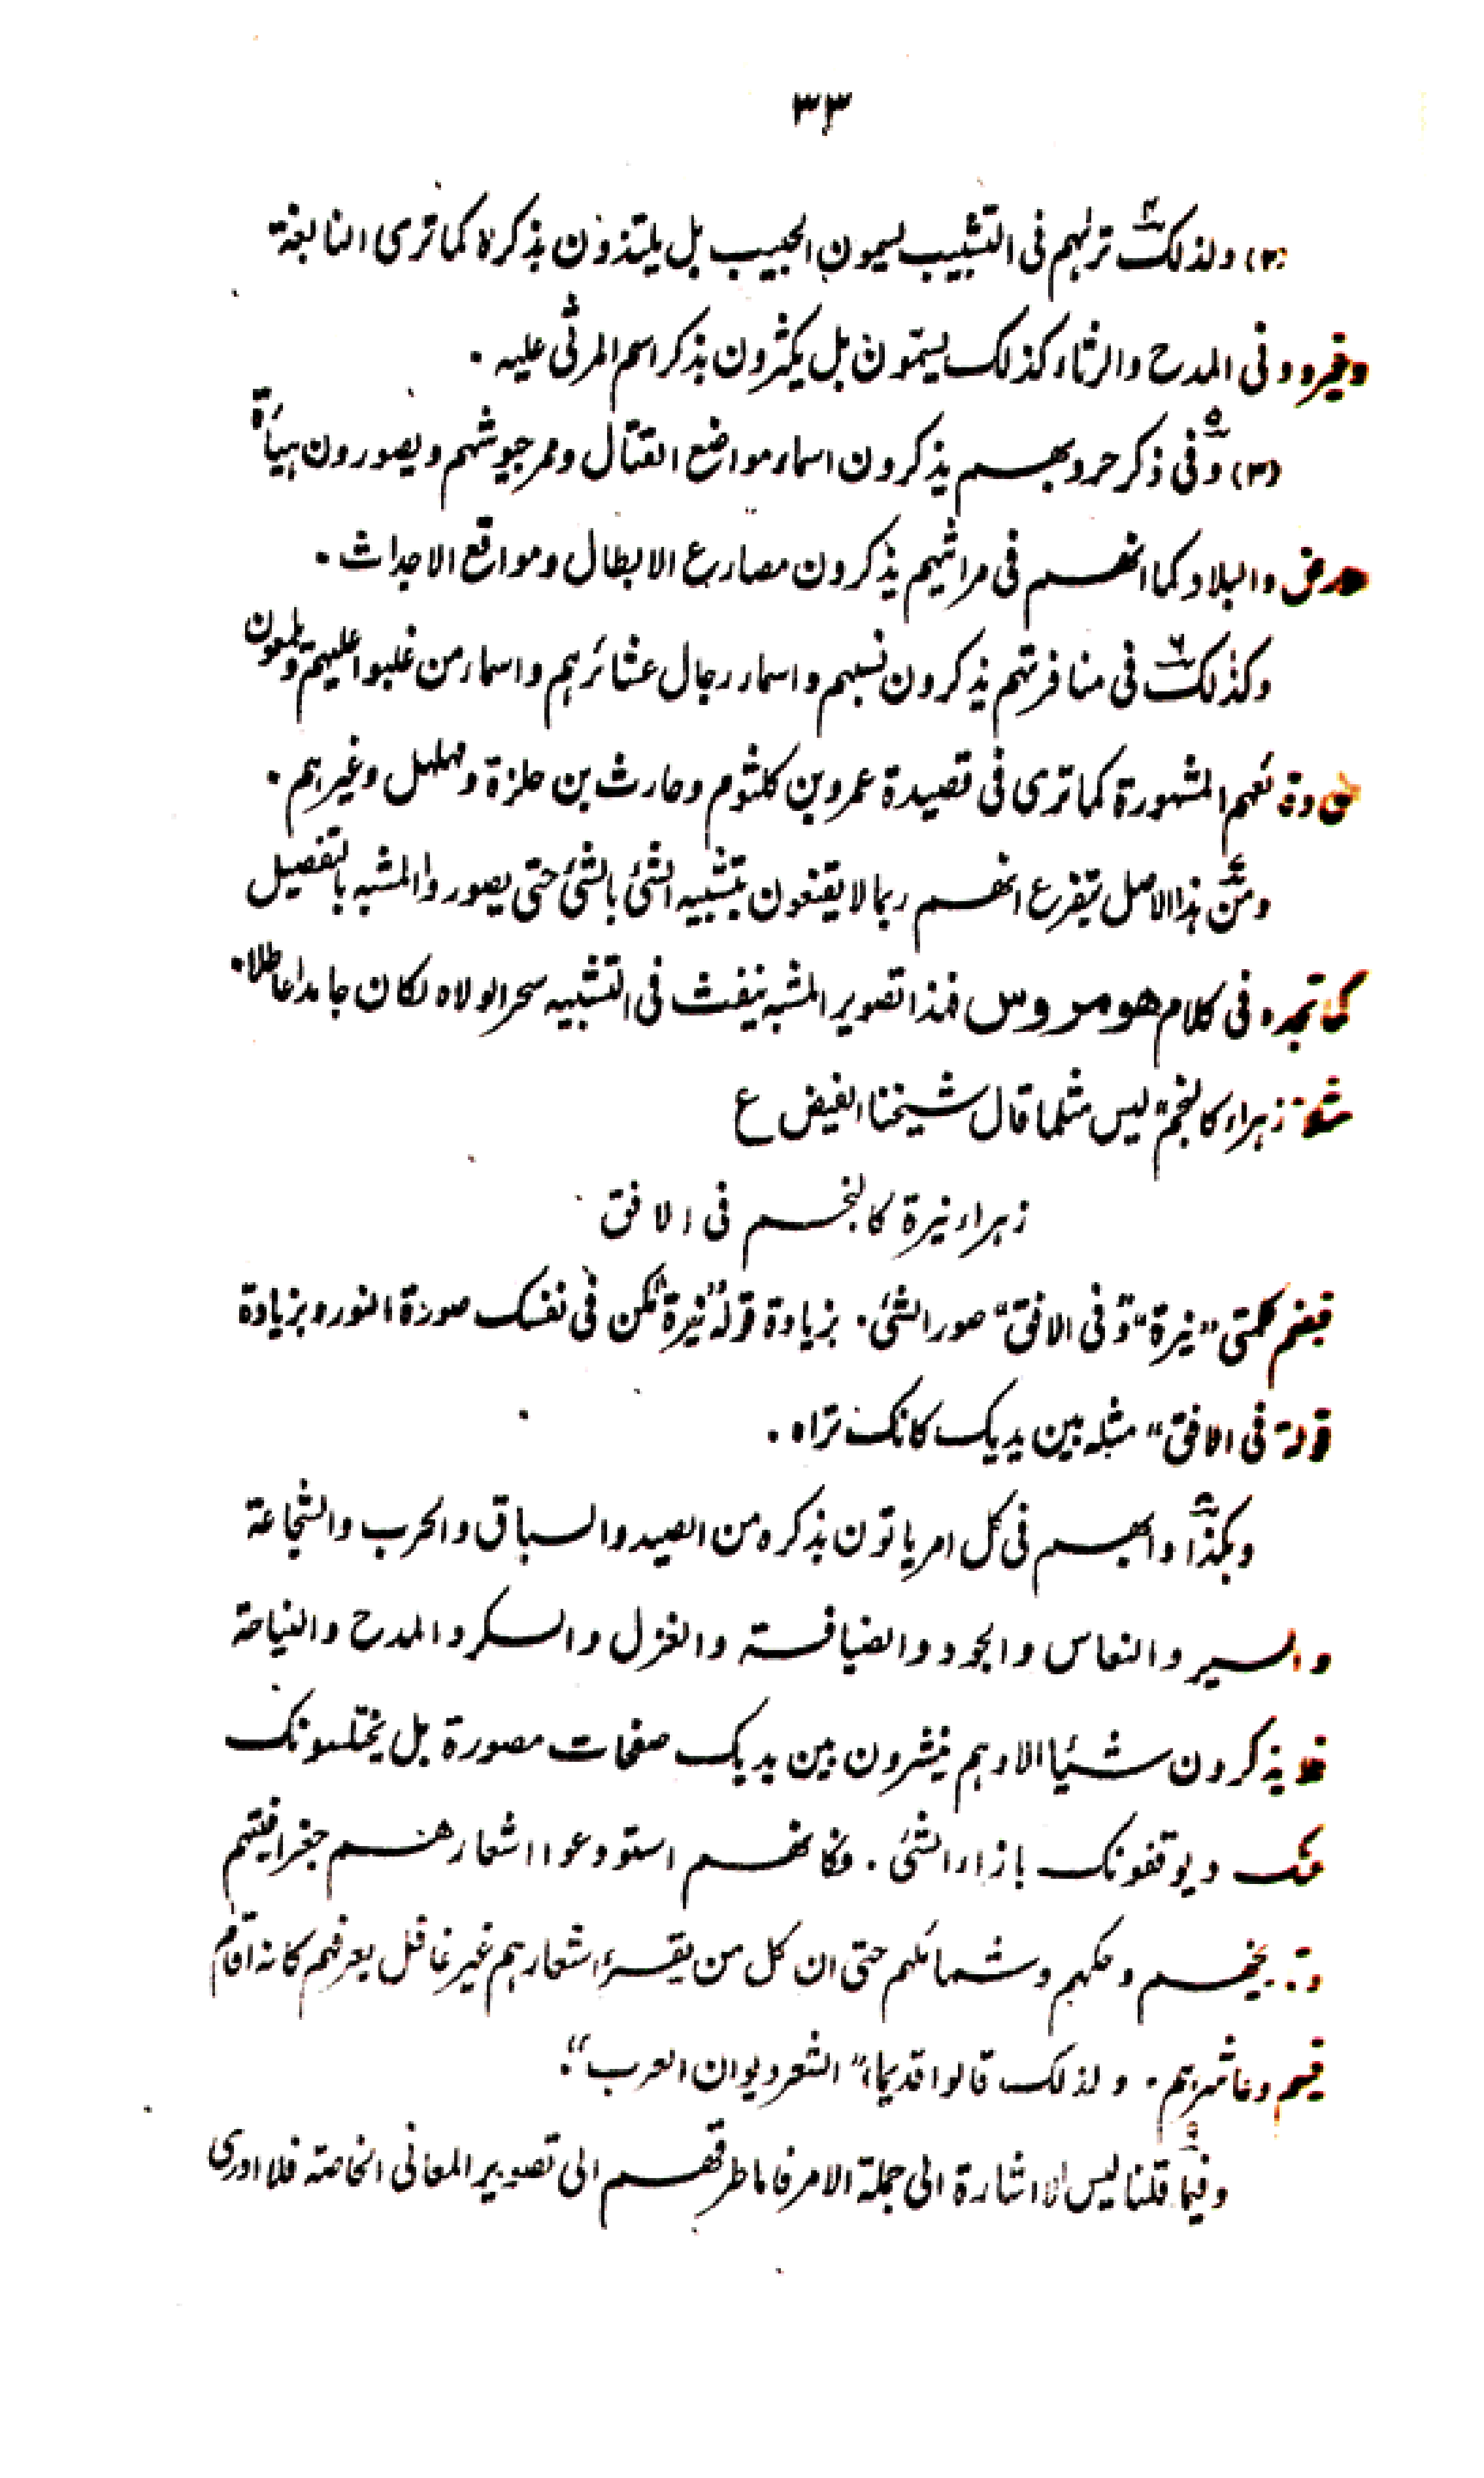 ٣٣
(٢) ولذلك ترٰهم فى التشبيب يسمون الحبيب بل يلتذون بذكره كما ترى النابغة
وغيره وفى المدح والرثاء كذلك يسمّون بل يكثرون بذكر اسم المرثى عليه .
(٣) وفى ذكر حروبهم يذكرون اسماء مواضع القتال وممر جيوشهم ويصورون هيأة
والبلاد كما انهم فى مراثيهم يذكرون مصارع الابطال ومواقع الاجداث .
وكذلك فى منافرتهم يذكرون نسبهم واسماء رجال عشائرهم واسماء من غلبوا عليهم
المشهورة كما ترى فى قصيدة عمرو بن كلثوم وحارث بن حلزة ومهلهل وغيرهم .
ومن هذا الاصل يتفرع انهم ربما لا يقنعون بتشبيه الشئ بالشئ حتى يصوروا المشبه بالتفصيل
كما تجده فى كلام هومروس فهذا تصوير المشبه ينفث فى التشبيه سحرا لولاه لكان جامدا عاطلا.
زهراء كالنجم" ليس مثلما قال شيخنا الفيض ع
زهراء نيرة كالنجم فى الافق
فبضم كلمتى "نيرة" و"فى الافق" صور الشئ . بزيادة قوله "نيرة" مكن فى نفسك صورة النور وبزيادة
قوله فى الافق" مثله بين يديك كانك تراه .
وهكذا دابهم فى كل امر ياتون بذكره من الصيد والسباق والحرب والشجاعة
والسير والنعاس والجود والضيافة والغزل والسكر والمدح والنياحة
فلا يذكرون شيئا الا وهم ينشرون بين يديك صفحات مصورة بل يختلسونك
منك ويوقفونك بازاء الشئ . فكانهم استودعوا اشعارهم جغرافيتهم
وتاريخهم وحكمهم وشمائلهم حتى ان كل من يقرء اشعارهم غير غافل يعرفهم كانه اقام
فيهم وعاشرهم . ولذلك قالوا قديما، "الشعر ديوان العرب".
وفيما قلنا ليس الا اشارة الى جملة الامر فاما طرقهم الى تصوير المعانى الخاصة فلا ادرى